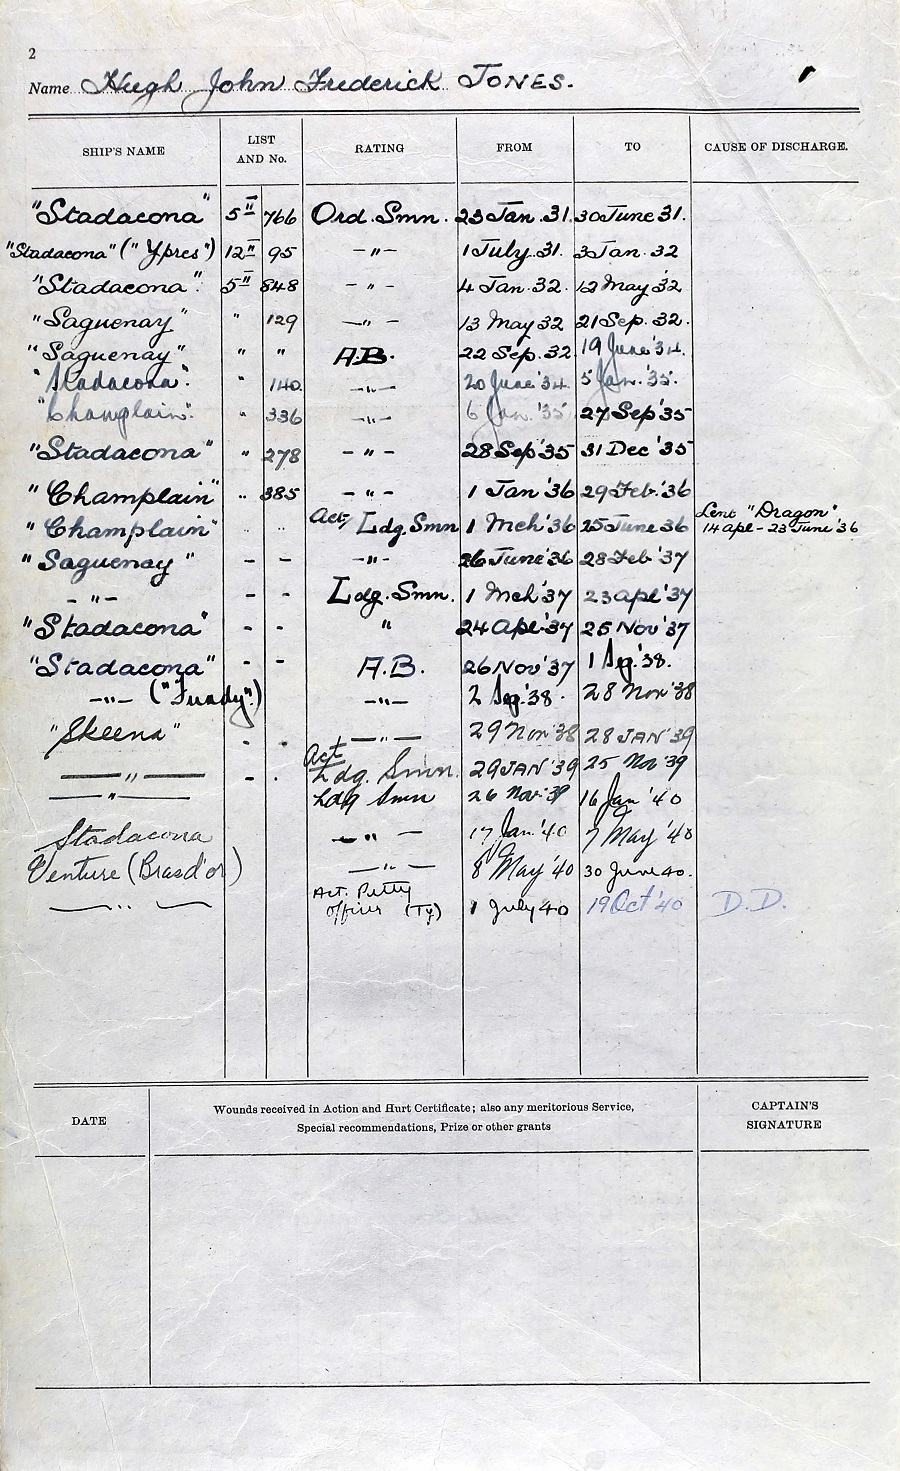 2
Name Hugh John Frederick JONES.
SHIP'S NAME LIST AND No. RATING FROM TO CAUSE OF DISCHARGE.
"Stadacona" 5" 766 Ord. Smn. 23 Jan. 31. 30 June 31.
"Stadacona" ("Ypres") 12" 95 -"- 1 July. 31. 3 Jan. 32
"Stadacona". 5" 848 -"- 4 Jan. 32. 12 May '32
"Saguenay" " 129 -"- 13 May 32 21 Sep. 32.
"Saguenay" " " A.B. 22 Sep. 32 19 June '34.
"Stadacona". " 140 -"- 20 June '34. 5 Jan. '35.
"Champlain". " 336 -"- 6 Jan. '35 27 Sep '35
"Stadacona" " 278 -"- 28 Sep '35 31 Dec '35
"Champlain" " 385 -"- 1 Jan '36 29 Feb. '36
"Champlain" " " Act/ Ldg. Smn 1 Mch '36 25 June 36 Lent "Dragon" 14 Apl - 23 June '36
"Saguenay" - - -"- 26 June '36 28 Feb '37
-"- - - Ldg. Smn. 1 Mch '37 23 Apl '37
"Stadacona" - - " 24 Apl. '37 25 Nov '37
"Stadacona" - - A.B. 26 Nov '37 1 Sep. '38.
-"- ("Fundy".) -"- 2 Sep. '38. 28 Nov '38
"Skeena" - - -"- 29 Nov '38 28 JAN '39
-"- - - Act Ldg. Smn. 29 JAN '39 25 Nov '39
-"- Ldg Smn 26 Nov. 39 16 Jan '40
Stadacona -"- 17 Jan '40 7 May '40
Venture (Bras d'or) -"- 8 May '40 30 June 40.
-"- Act. Petty Officer (Ty) 1 July 40 19 Oct '40 D.D.
DATE Wounds received in Action and Hurt Certificate; also any meritorious Service, CAPTAIN'S
Special recommendations, Prize or other grants SIGNATURE